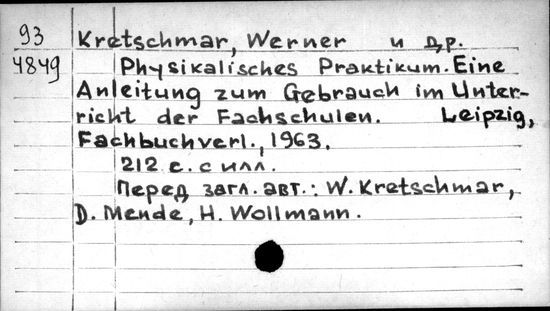 93 Kretschmar, Werner и др.
4849 Physikalisches Praktikum. Eine
Anleitung zum Gebrauch im Unter-
richt der Fachschulen. Leipzig,
Fachbuchverl., 1963.
212 с. с илл.
Перед загл. авт.: W. Kretschmar,
D. Mende, H. Wollmann.